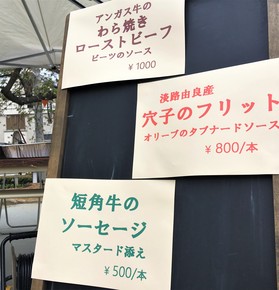 アンガス牛の
わら焼き
ローストビーフ
ビーツのソース
￥1000
淡路由良産
穴子のフリット
オリーブのタプナードソース
￥800/本
短角牛の
ソーセージ
マスタード添え
￥500/本